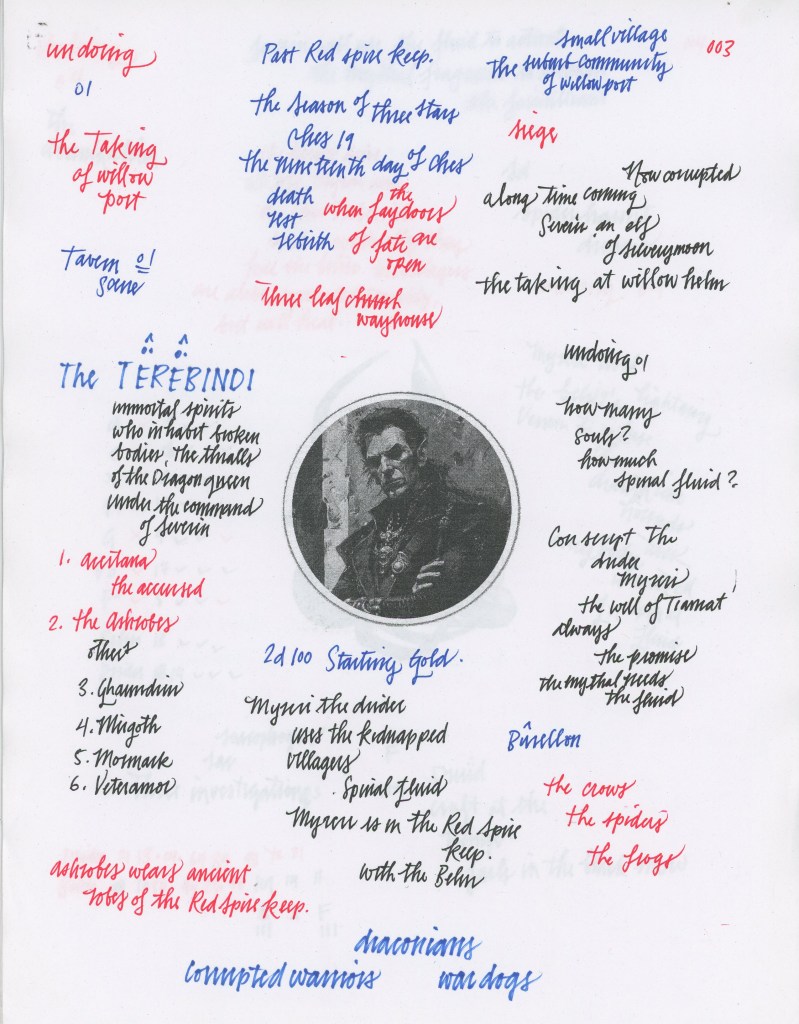 undoing
01
the Taking
of willow
port
Tavern 01
Scene
Past Red spire keep.
the season of three stars
Ches 19
the nineteenth day of Ches
death
rest
rebirth
when the
fay doors
of fate are
open
Three leaf church
wayhouse
small village
the submit community
of willow port
003
siege
Now corrupted
a long time coming
Severin an elf
of Silverymoon
the taking at willow helm
The TEREBINDI
immortal spirits
who inhabit broken
bodies, the thralls
of the Dragon queen
under the command
of Severin
1. Accitana
the accursed
2. the Ashrobes
others
3. Ghaundin
4. Mirgoth
5. Mormark
6. Veteramor
undoing 01
how many
souls?
how much
spinal fluid?
Conscript the
druder
Myreri
the well of Tiamat
always
the promise
the mythal needs
the fluid
2d100 Starting Gold.
Myreri the druder
uses the kidnapped
villagers
. Spinal fluid
Myreri is in the Red Spire
keep.
with the Behir
Bûrellon
the crows
the spiders
the frogs
ashrobes wears ancient
robes of the Red Spire keep.
draconians
corrupted warriors
war dogs